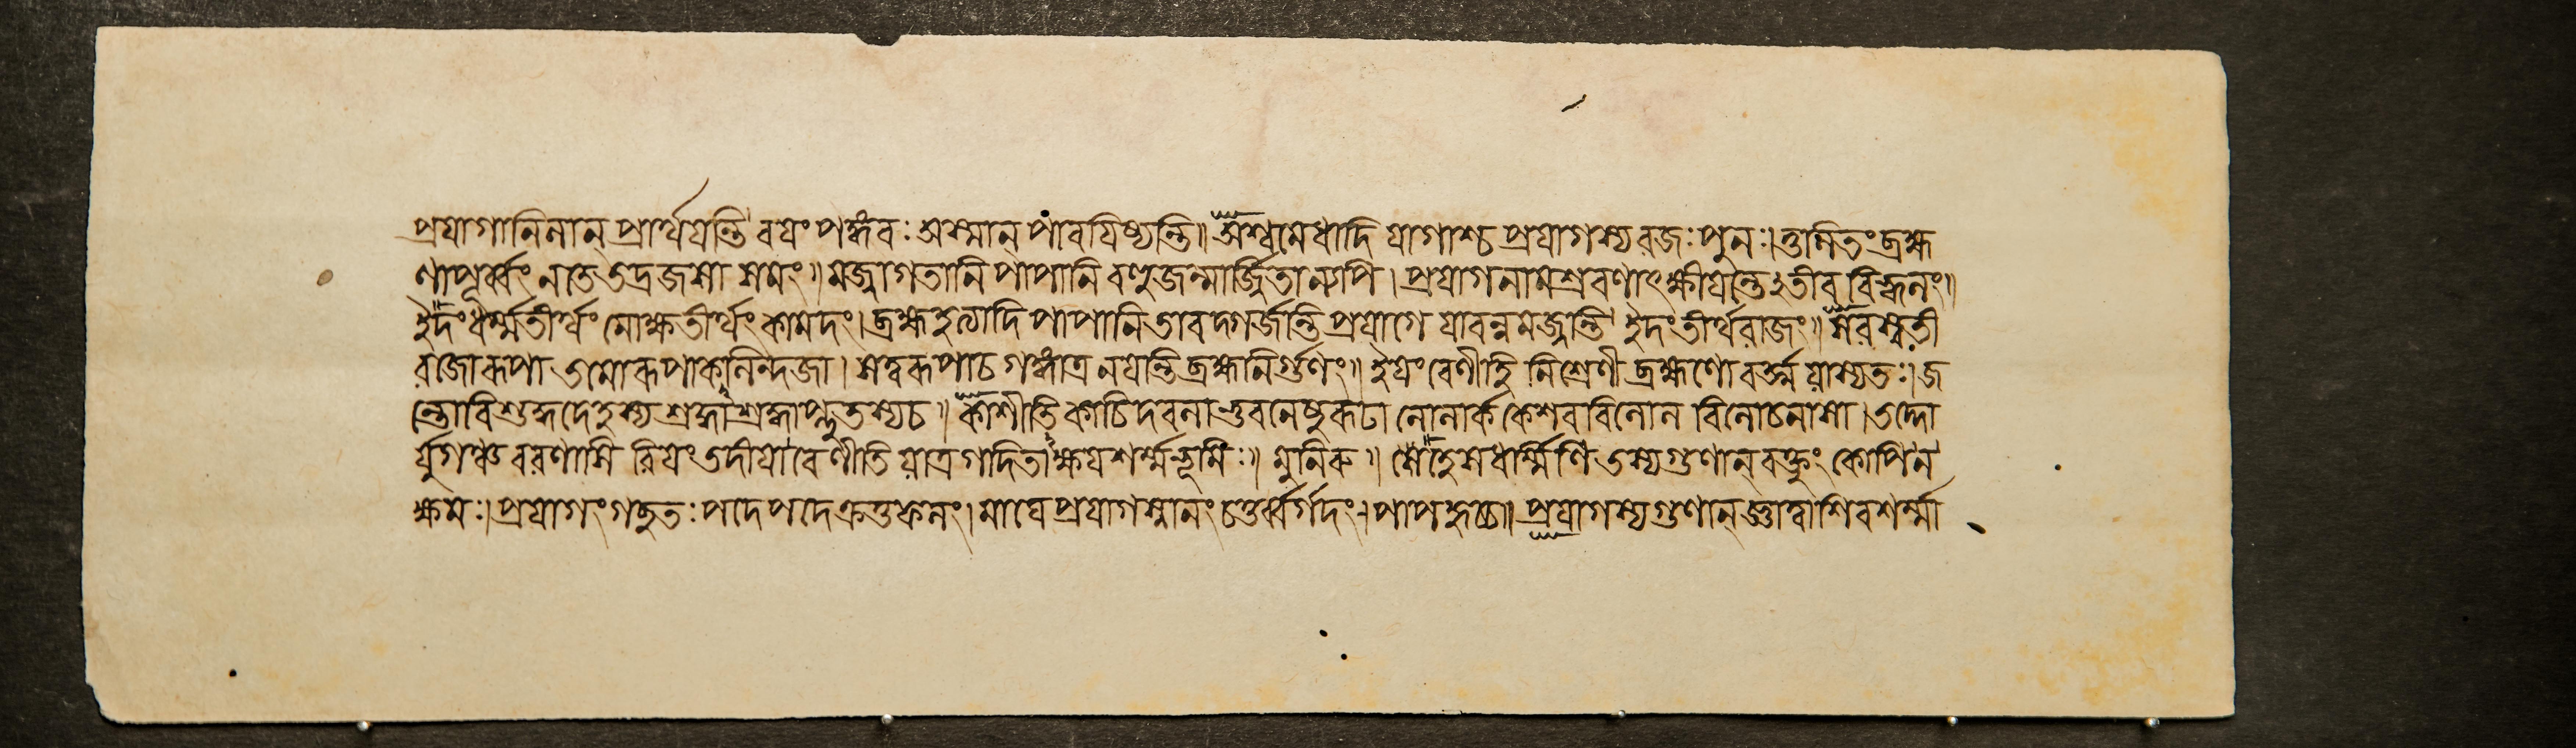 প্রযাগানিনান্ প্রার্থযন্তি বযং পঙ্কবঃ অস্মান্ পাবযিষ্যন্তি॥ অশ্বমেধাদি যাগাশ্চ প্রযাগস্য রজঃ পুনঃ। তুলিতং ব্রহ্ম
ণাপূর্ব্বং নতে তদ্রজসা সমং॥ মজ্জাগতানি পাপানি বহুজন্মার্জিতান্যপি। প্রযাগনামশ্রবণাৎ ক্ষীযন্তেঽতীব বিহ্বলং॥
ইদং ধর্ম্মতীর্থং মোক্ষতীর্থং কামদং। ব্রহ্মহত্যাদি পাপানি তাবদ্গর্জন্তি প্রযাগে যাবন্নমজ্জন্তি ইদং তীর্থরাজং॥ সরস্বতী
রজোরূপা তমোরূপা কলিন্দজা। সত্বরূপা চ গঙ্গাত্র নযন্তি ব্রহ্মনির্গুণং॥ ইযং বেণীহি নিশ্রেণী ব্রহ্মণো বর্ত্ম যাস্যতঃ। জ
ন্তোর্বিশুদ্ধদেহস্য শ্রদ্ধাশ্রদ্ধাপ্লুতস্য চ॥ কাশীতি কাচিদবলা ভুবনেষু রূঢা লোলার্ক কেশববিলোল বিলোচনা সা। তদ্দো
র্যুগঞ্চ বরণাসি রিযং তদীযা বেণীতি যাত্র গদিতাক্ষযশর্ম্মভূমিঃ॥ মুনিরু॥ সহধর্ম্মিণি তস্য গুণান্ বক্তুং কোপি ন
ক্ষমঃ। প্রযাগং গচ্ছতঃ পদে পদে ক্রতুফলং। মাঘে প্রযাগস্নানং চতুর্ব্বর্গদং। প্রযাগস্য গুণান্ জ্ঞাত্বা শিবশর্ম্মা